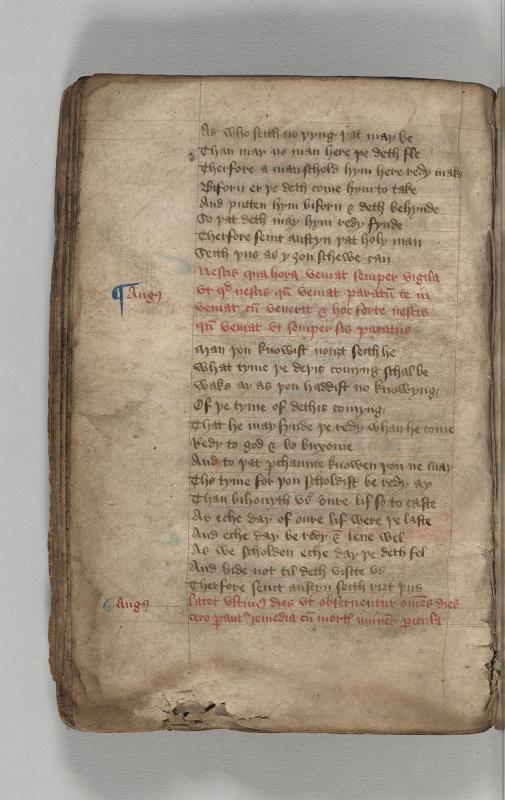 As who seith no þyng þat may be
Than may no man here þe deth fle
Therfore a man schold hym here redy make
Biforn er þe deth come hym to take
And putten hym biforn & deth behynde
So þat deth may hym redy fynde
Therfore seint austyn þat holy man
Seith þus as y ȝou schewe can
Nescis qua hora veniat semper vigila
Augꝰ
vt qꝛ nescis qn̄ veniat paratū te in
veniat cū venerit & hoc forte nescis
qn̄ veniat vt semper sis paratus
Man þou knowist nouȝt seith he
What tyme þe deþis comyng schal be
Wake ay as þou haddist no knowyng
Of þe tyme of dethis comyng
That he may fynde þe redy whan he come
Redy to god & bo buxome
And to þat ꝑchaunce knowen þou ne may
The tyme for þou scholdist be redy ay
Than bihouyth vs oure lif so to caste
As eche day of oure lif were þe laste
And eche day be redy & leue wel
As we scholden eche day þe deth fel
And bide not til deth visite vs
Therfore seint austyn seith riȝt þus
Augꝰ
latet vltimꝰ dies vt obseruentur om̄es dies
sero ꝑant remedia cū mortꝭ ꝑicula